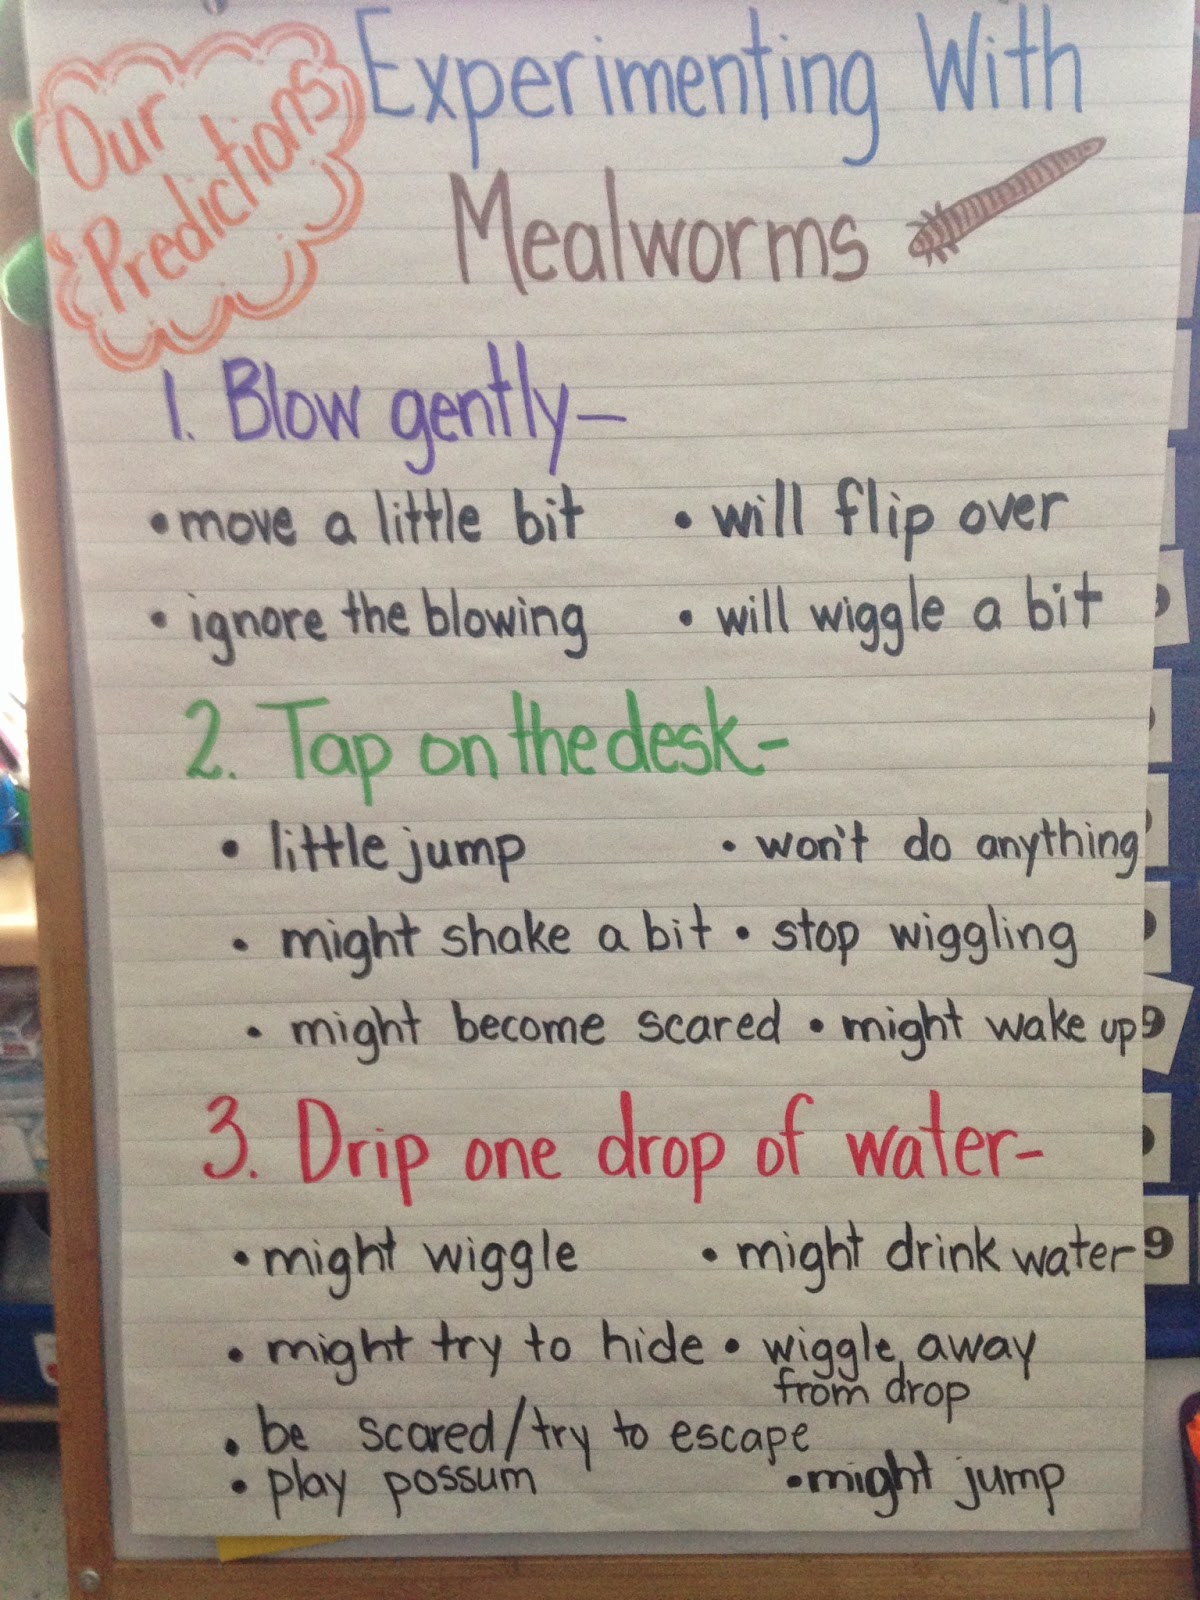 Our
Predictions
Experimenting With
Mealworms
1. Blow gently-
•move a little bit
• will flip over
• ignore the blowing
• will wiggle a bit
2. Tap on the desk-
• little jump
• won't do anything
• might shake a bit
• stop wiggling
• might become scared
• might wake up
3. Drip one drop of water-
• might wiggle
• might drink water
• might try to hide
• wiggle away
from drop
• be scared/try to escape
• play possum
•might jump
9
9